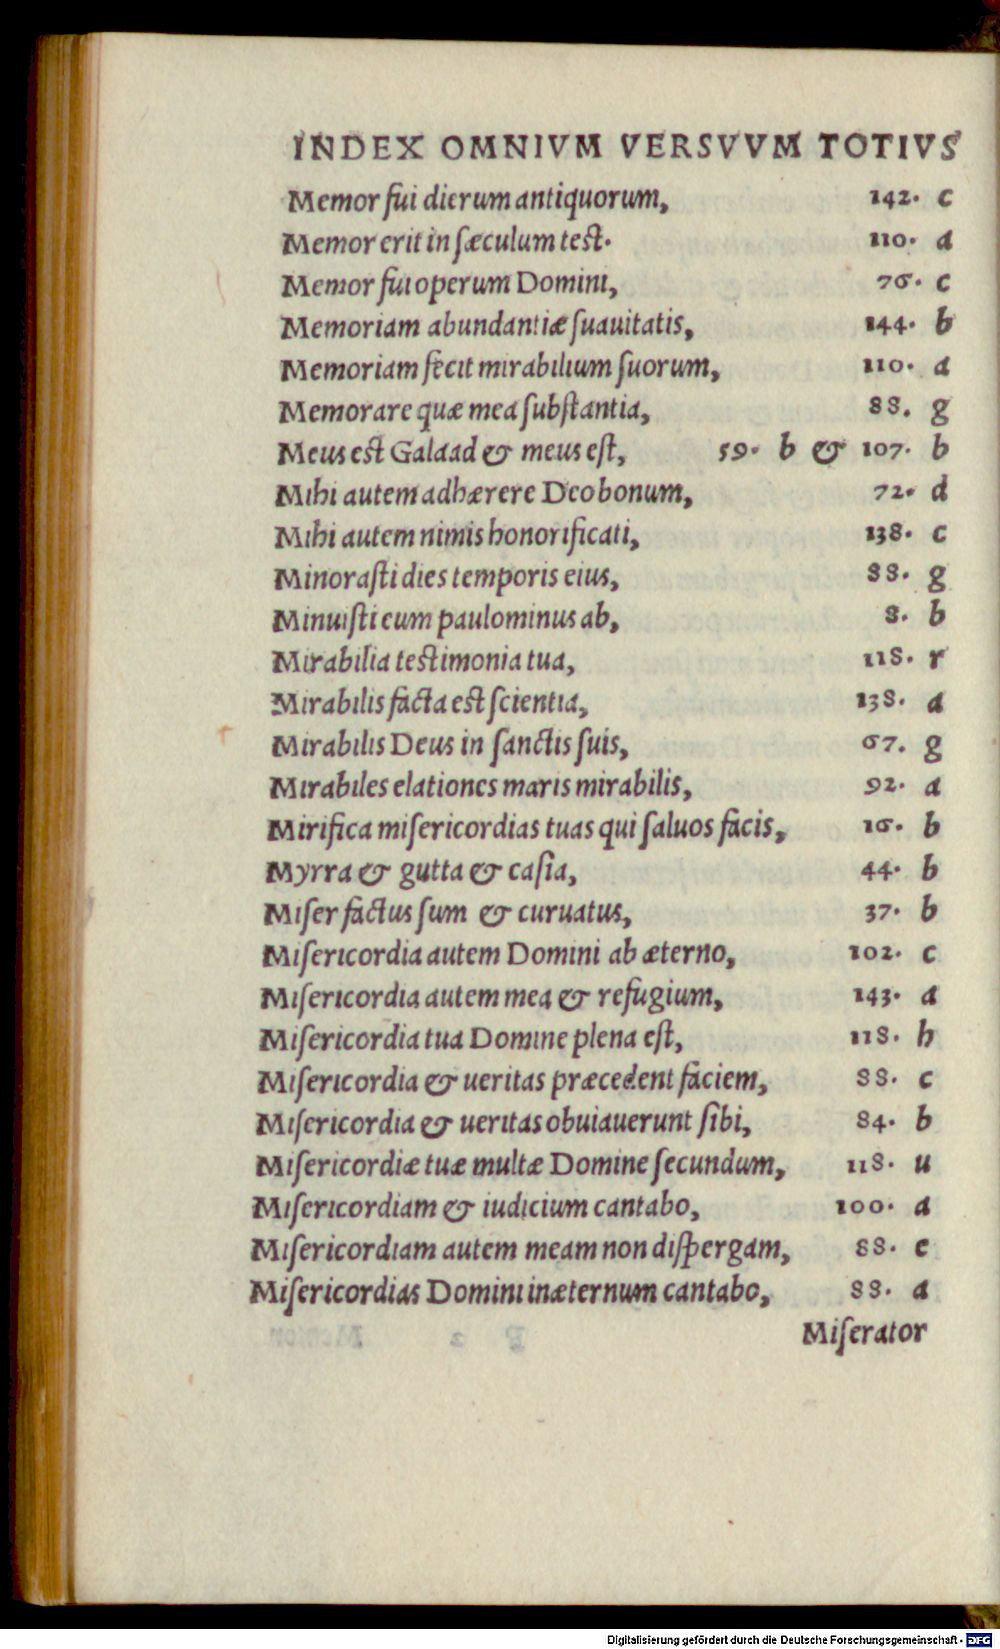 INDEX OMNIVM VERSVVM TOTIVS
Memor fui dierum antiquorum, 142. c
Memor erit in sæculum test. 110. a
Memor fui operum Domini, 76. c
Memoriam abundantiæ suauitatis, 144. b
Memoriam fecit mirabilium suorum, 110. a
Memorare quæ mea substantia, 88. g
Meus est Galaad & meus est, 59. b & 107. b
Mihi autem adhærere Deo bonum, 72. d
Mihi autem nimis honorificati, 138. c
Minorasti dies temporis eius, 88. g
Minuisti eum paulominus ab, 8. b
Mirabilia testimonia tua, 118. r
Mirabilis facta est scientia, 138. a
Mirabilis Deus in sanctis suis, 67. g
Mirabiles elationes maris mirabilis, 92. a
Mirifica misericordias tuas qui saluos facis, 16. b
Myrra & gutta & casia, 44. b
Miser factus sum & curuatus, 37. b
Misericordia autem Domini ab æterno, 102. c
Misericordia autem mea & refugium, 143. a
Misericordia tua Domine plena est, 118. h
Misericordia & ueritas præcedent faciem, 88. c
Misericordia & ueritas obuiauerunt sibi, 84. b
Misericordiæ tuæ multæ Domine secundum, 118. u
Misericordiam & iudicium cantabo, 100. a
Misericordiam autem meam non dispergam, 88. e
Misericordias Domini inæternum cantabo, 88. a
Miserator
Digitalisierung gefördert durch die Deutsche Forschungsgemeinschaft - DFG